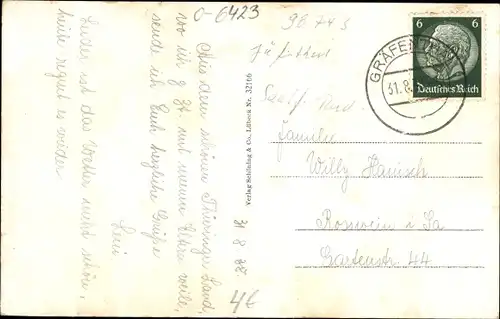 0-6423
98 74 S
Aus dem schönen Thüringer Land,
wo ich z. Zt. mit meinen Eltern weile,
sende ich Euch herzliche Grüße
Leni
Leider ist das Wetter nicht schön,
heute regnet es wieder.
31. 8. 37
4€
Verlag Schöning & Co., Lübeck Nr. 32166
GRÄFEN
31.8.
6 6
Deutsches Reich
Familie
Willy Hanisch
Rosswein i. Sa
Gartenstr. 44